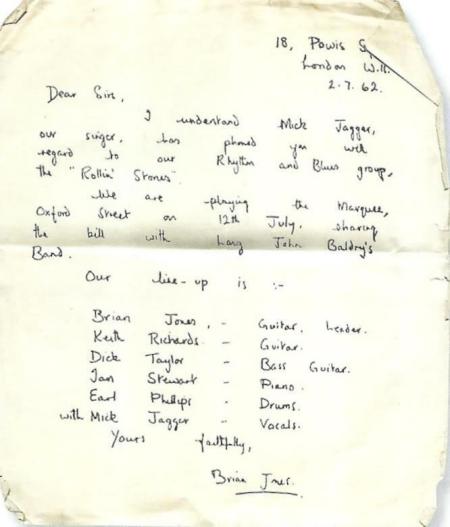 18, Powis S
London W.11.
2.7.62.
Dear Sirs,
I understand Mick Jagger,
our singer, has phoned you with
regard to our Rhythm and Blues group,
the "Rollin' Stones".
We are playing the Marquee,
Oxford Street on 12th July, sharing
the bill with Long John Baldry's
Band.
Our line-up is :-
Brian Jones, - Guitar, Leader.
Keith Richards - Guitar.
Dick Taylor - Bass Guitar.
Ian Stewart - Piano.
Earl Phillips - Drums.
with Mick Jagger - Vocals.
Yours faithfully,
Brian Jones.